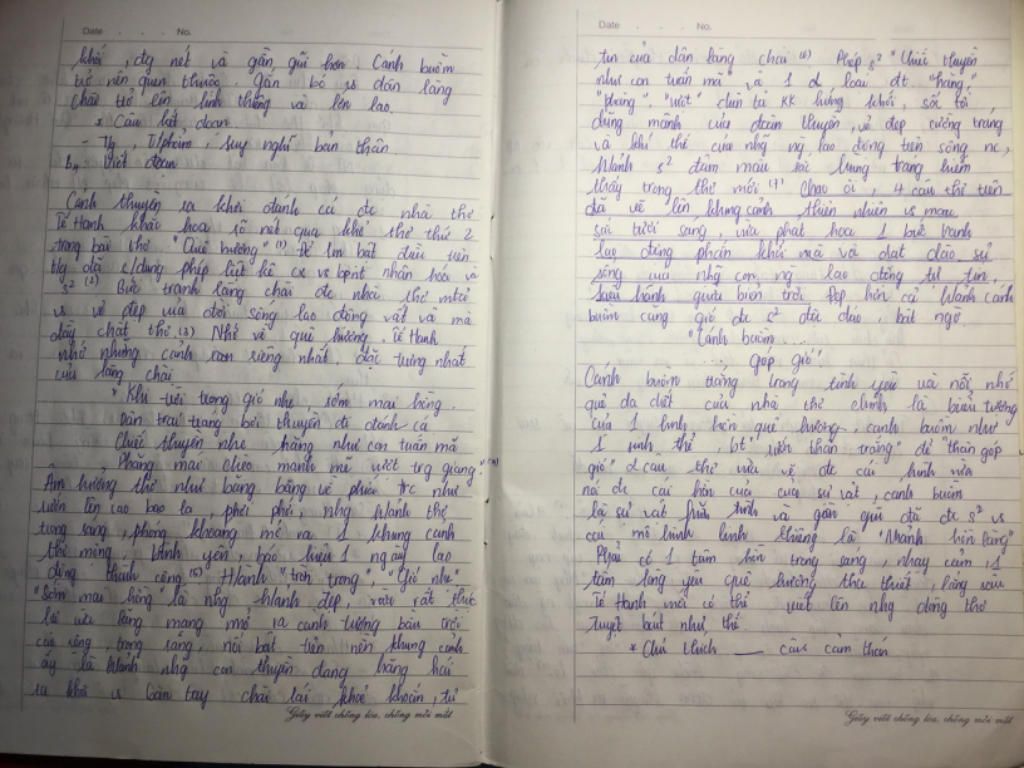 Date . . . No.
khối, đg nét và gần gũi hơn. Cánh buồm
trở nên quen thuộc. Gắn bó vs dân làng
chài trở lên linh thiêng và lớn lao.
* Câu kết đoạn
- Tg, T/phẩm, suy nghĩ bản thân.
B4 Viết đoạn
Cảnh thuyền ra khơi đánh cá đc nhà thơ
Tế Hanh khắc họa rõ nét qua khổ thơ thứ 2
trong bài thơ "Quê hương" (1) Để bắt đầu tiên
tg đã s/dụng phép liệt kê cx vs bpnt nhân hóa và
s² (2) Bức tranh làng chài đc nhà thơ mtả
vs vẻ đẹp của đời sống lao động vất vả mà
đầy chất thơ (3) Nhớ về quê hương, Tế Hanh
nhớ những cảnh riêng nhất, đặc trưng nhất
của làng chài
"Khi trời trong gió nhẹ sớm mai hồng.
Dân trai tráng bơi thuyền đi đánh cá
Chiếc thuyền nhẹ hăng như con tuấn mã
Phăng mái chèo mạnh mẽ vượt trg giang." (4)
Âm hưởng thơ như băng băng về phía trc như
rướn lên cao bao la, phơi phới, nhg h/ảnh thơ
trong sáng, phóng khoáng mở ra 1 khung cảnh
thơ mộng, bình yên, báo hiệu 1 ngày lao
động thành công (5) H/ảnh "trời trong", "Gió nhẹ"
"sớm mai hồng" là nhg h/ảnh đẹp, vừa rất thực
lại vừa lãng mạng mở ra cảnh tượng bầu trời
cao rộng, trong sáng, nổi bật trên nền khung cảnh
ấy là h/ảnh nhg con thuyền đang hăng hái
ra khơi vs bàn tay chài lái khỏe khoắn, tự
Giấy viết chống lóa, chống mỏi mắt
Date . . . No.
tin của dân làng chài (6) Phép s² "Chiếc thuyền
như con tuấn mã" và 1 loạt đt "hăng"
"phăng". "vượt" diễn tả KK hứng khởi, sôi tối
dũng mãnh của đoàn thuyền, vẻ đẹp cường tráng
và khí thế của nhg ng lao động trên sông nc,
h/ảnh s² đậm màu sắc hiếm
thấy trong thơ mới (7) Chao ôi, 4 câu thơ trên
đã vẽ lên khung cảnh thiên nhiên vs màu
sắc tươi sáng, vừa phát họa 1 bức tranh
lao động phấn khởi mà và dạt dào sự
sống của nhg con ng lao động tự tin,
kiêu hãnh giữa biển trời. Đẹp hơn cả h/ảnh cánh
buồm căng gió đc s² độc đáo, bất ngờ
"Cánh buồm ...
góp gió"
Cánh buồm trắng trong tình yêu và nỗi nhớ
quê da diết của nhà thơ chính là biểu tượng
của 1 linh hồn quê hương, cánh buồm như
1 sinh thể, bt "rướn thân trắng" để "thâu góp
gió" 2 câu thơ vừa vẽ đc cái hình vừa
nói đc cái hồn của của sự vật, cánh buồm
là sự vật hữu hình và gần gũi đã đc s² vs
cái mô hình linh thiêng là "Mảnh hồn làng"
Phải có 1 tâm hồn trong sáng, nhạy cảm, 1
tấm lòng yêu quê hương tha thiết, lắng sâu
Tế Hanh mới có thể viết lên nhg dòng thơ
tuyệt bút như thế
* Chú thích ___ câu cảm thán
Giấy viết chống lóa, chống mỏi mắt